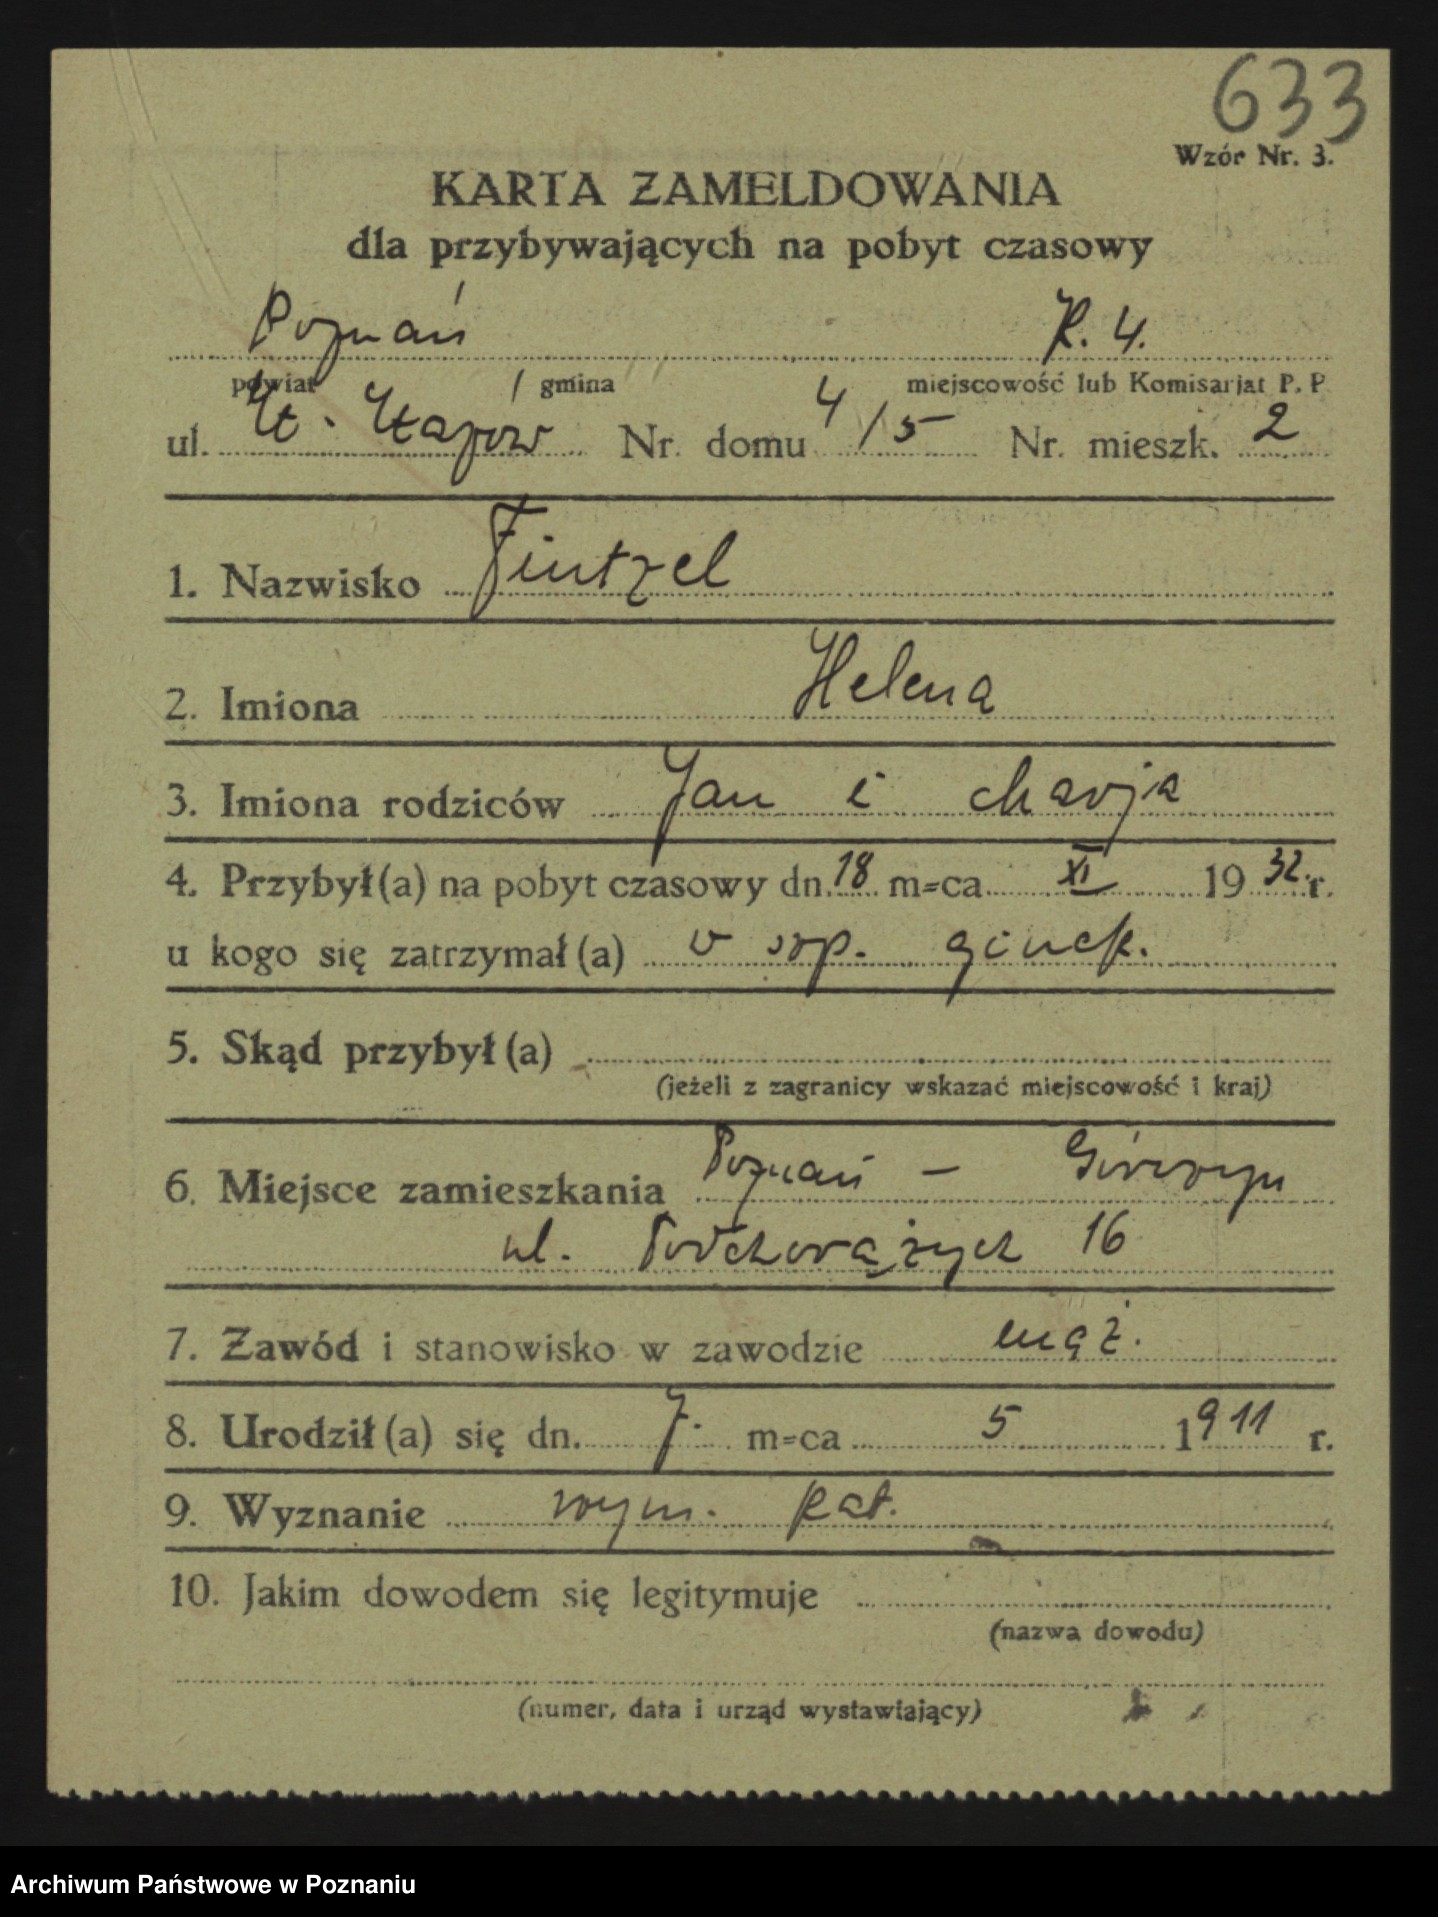 633
Wzór Nr. 3.
KARTA ZAMELDOWANIA
dla przybywających na pobyt czasowy
Poznań K. 4.
powiat / gmina miejscowość lub Komisarjat P. P
ul. Nr. domu 4/5 Nr. mieszk. 2
1. Nazwisko Fintzel
2. Imiona Helena
3. Imiona rodziców Jan i Marja
4. Przybył(a) na pobyt czasowy dn. 18 m-ca XI 1932 r.
u kogo się zatrzymał(a) w szp. ginek.
5. Skąd przybył(a)
(jeżeli z zagranicy wskazać miejscowość i kraj)
6. Miejsce zamieszkania Poznań - Górczyn
ul. Podchorążych 16
7. Zawód i stanowisko w zawodzie męż.
8. Urodził(a) się dn. 7. m-ca 5 1911 r.
9. Wyznanie rzym. kat.
10. Jakim dowodem się legitymuje
(nazwa dowodu)
(numer, data i urząd wystawiający)
Archiwum Państwowe w Poznaniu